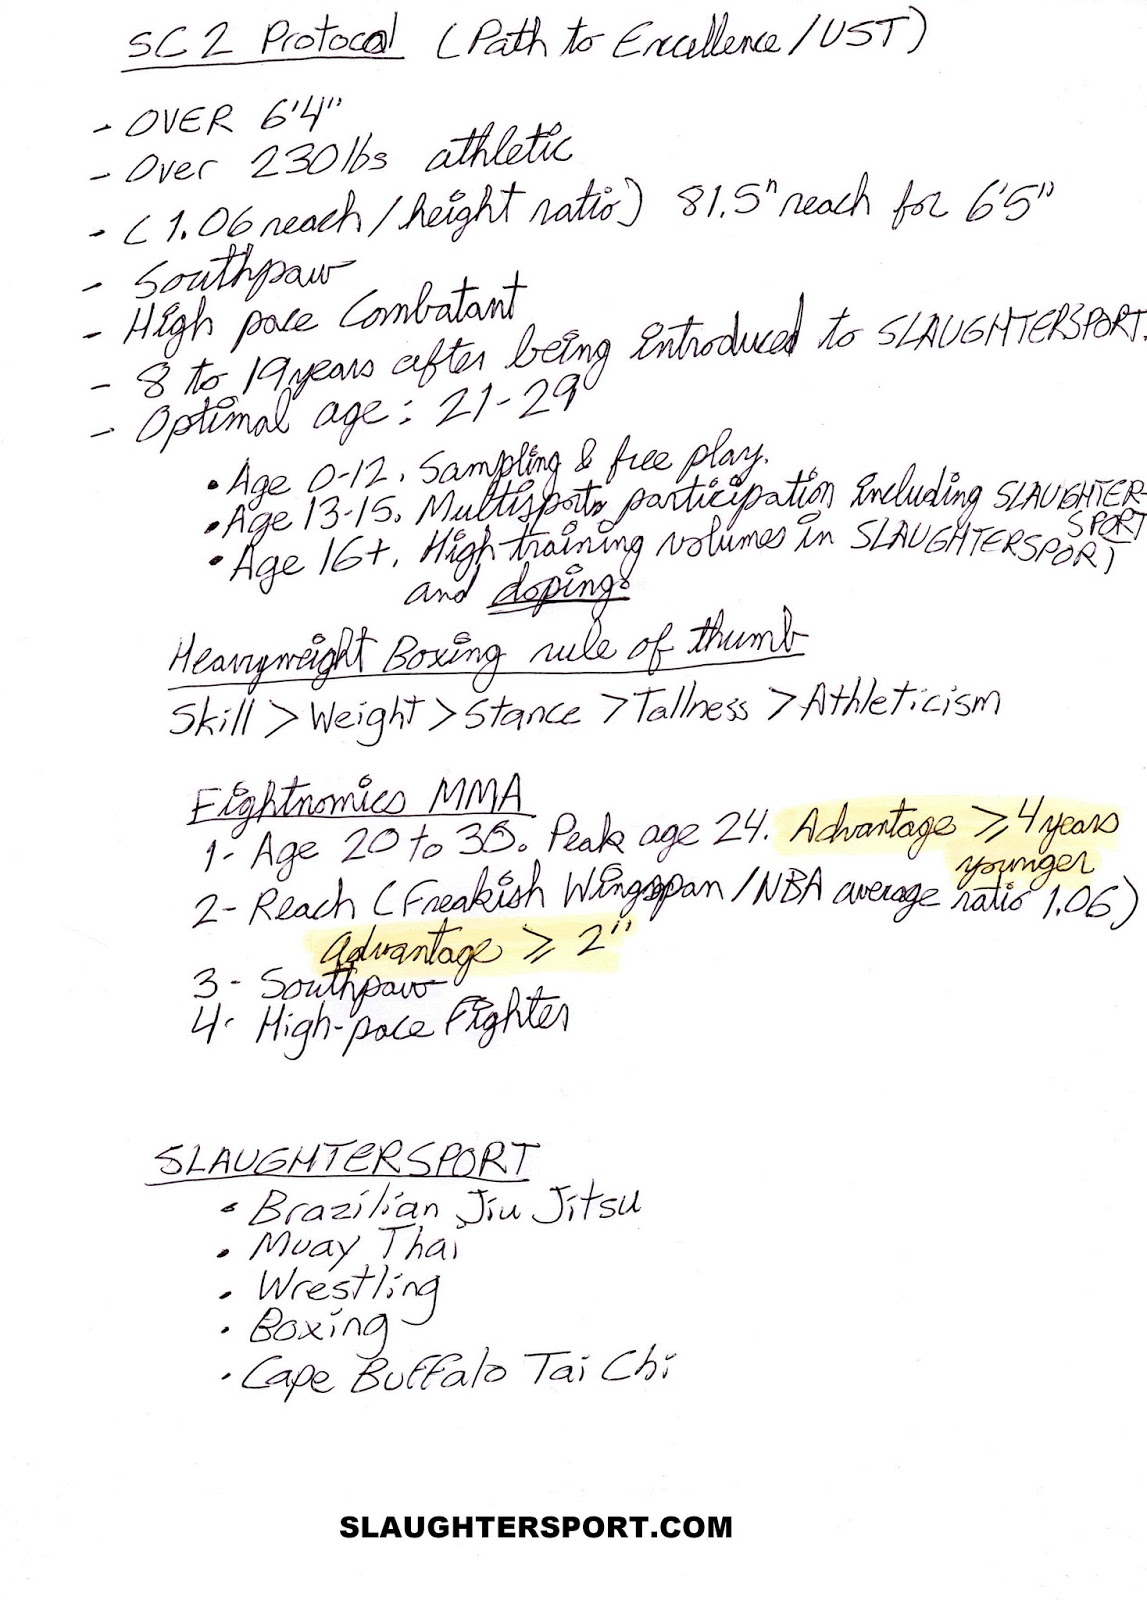 SC2 Protocol (Path to Excellence/UST)
- OVER 6'4"
- Over 230lbs athletic
- (1.06 reach/height ratio) 81.5" reach for 6'5"
- Southpaw
- High pace Combatant
- 8 to 19 years after being introduced to SLAUGHTERSPORT.
- Optimal age: 21-29
• Age 0-12. Sampling & free play.
• Age 13-15. Multisports participation including SLAUGHTER-
SPORT
• Age 16+. High training volumes in SLAUGHTERSPORT
and doping.
Heavyweight Boxing rule of thumb
Skill > Weight > Stance > Tallness > Athleticism
Fightnomics MMA
1- Age 20 to 35. Peak age 24. Advantage ≥ 4 years
younger
2- Reach (Freakish Wingspan/NBA average ratio 1.06)
Advantage ≥ 2"
3- Southpaw
4- High-pace Fighter
SLAUGHTERSPORT
• Brazilian Jiu Jitsu
• Muay Thai
• Wrestling
• Boxing
• Cape Buffalo Tai Chi
SLAUGHTERSPORT.COM